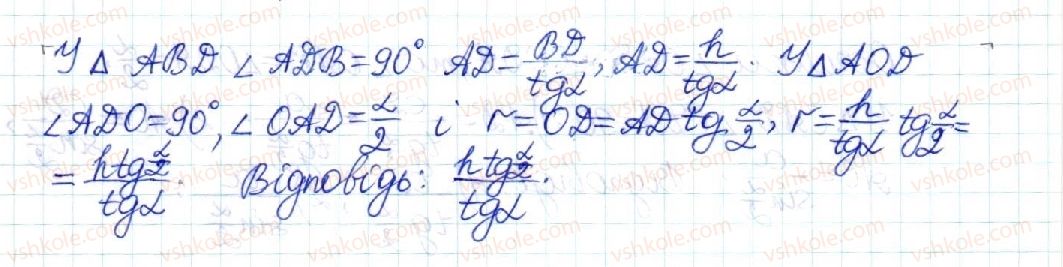 У △ ABD ∠ ADB = 90° AD = BD/tgα, AD = h/tgα. У △ AOD
∠ ADO = 90°, ∠ OAD = α/2 і r = OD = AD tg α/2, r = h/tgα tg α/2 =
= h tg α/2 / tgα. Відповідь: h tg α/2 / tgα.